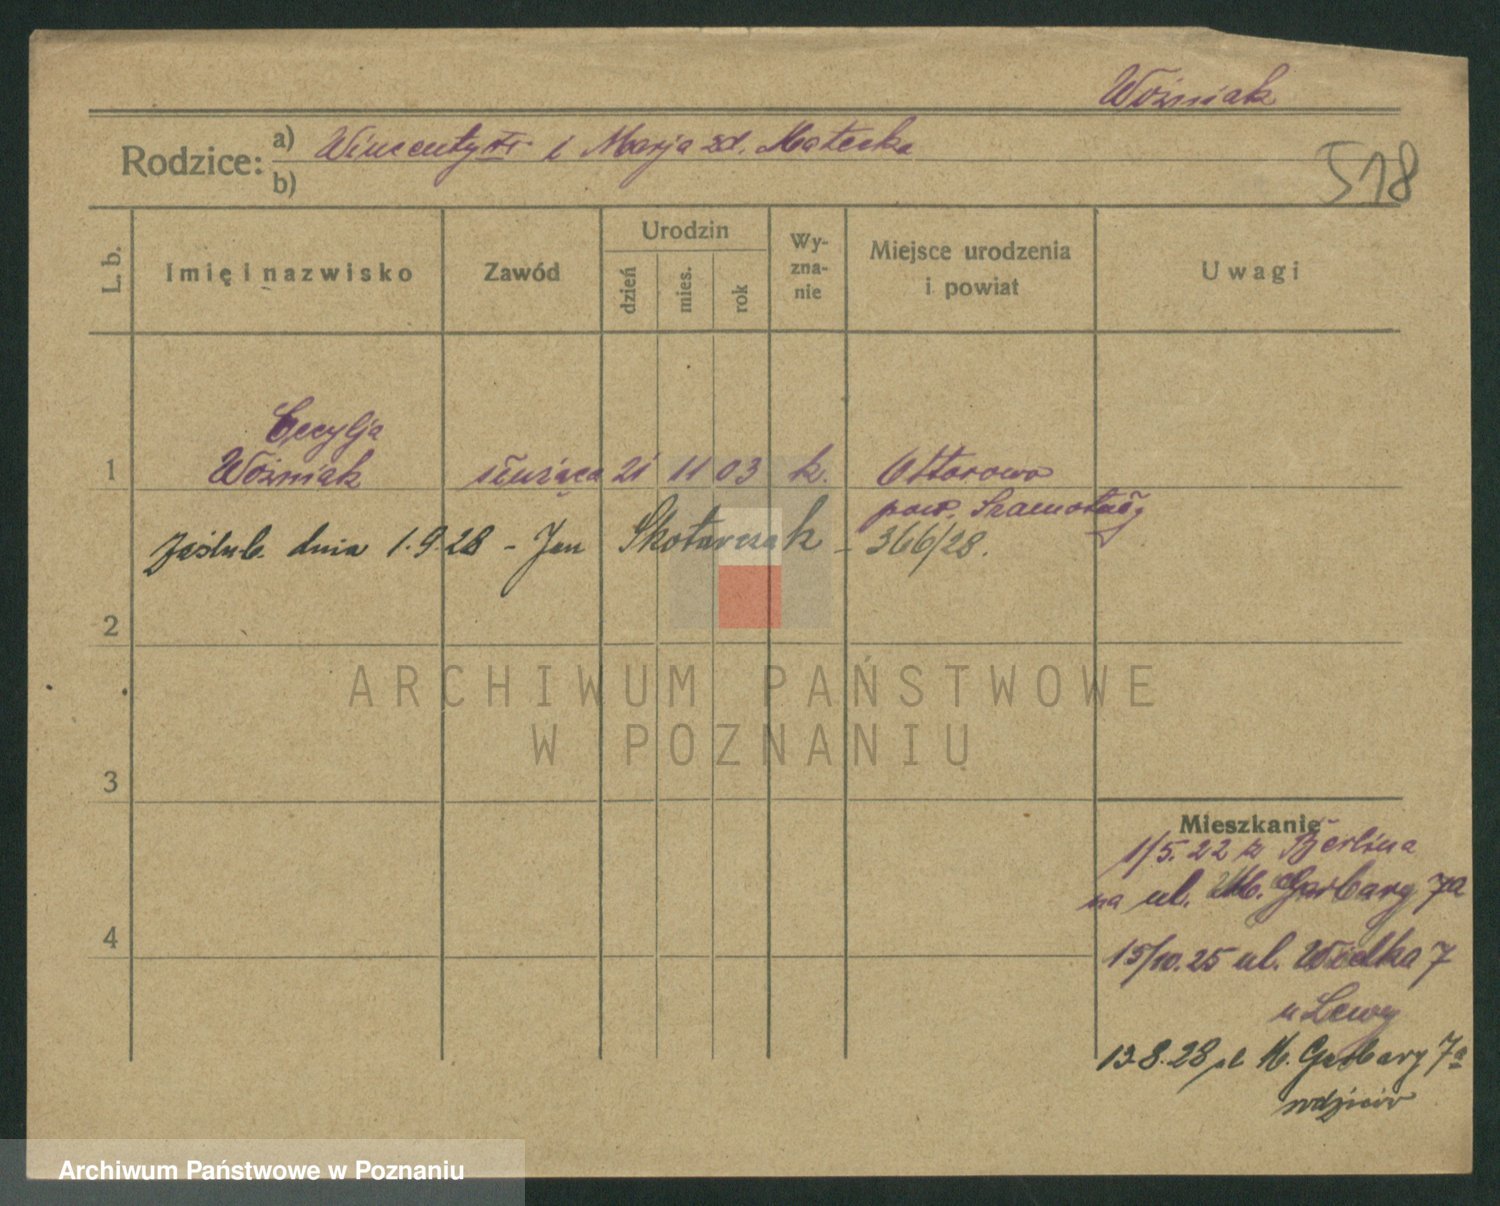 Woźniak
518
Rodzice:
a) Wincenty i Marja zd. Małecka
b)
L. b.
Imię i nazwisko
Zawód
Urodzin
dzień
mies.
rok
Wy-
zna-
nie
Miejsce urodzenia
i powiat
Uwagi
Cecylja
1 Woźniak służąca 21 11 03 k. Ottorowo
pow. Szamotuły
zaślub. dnia 1.9.28 - Jan Skotarczak - 366/28.
2
3
4
Mieszkanie
1/5.22 z Berlina
na ul. M. Garbary 7a
15/10.25 ul. Wielka 7
u Lewy
13.8.28 M. Garbary 7a
rodziców
ARCHIWUM PAŃSTWOWE
W POZNANIU
Archiwum Państwowe w Poznaniu